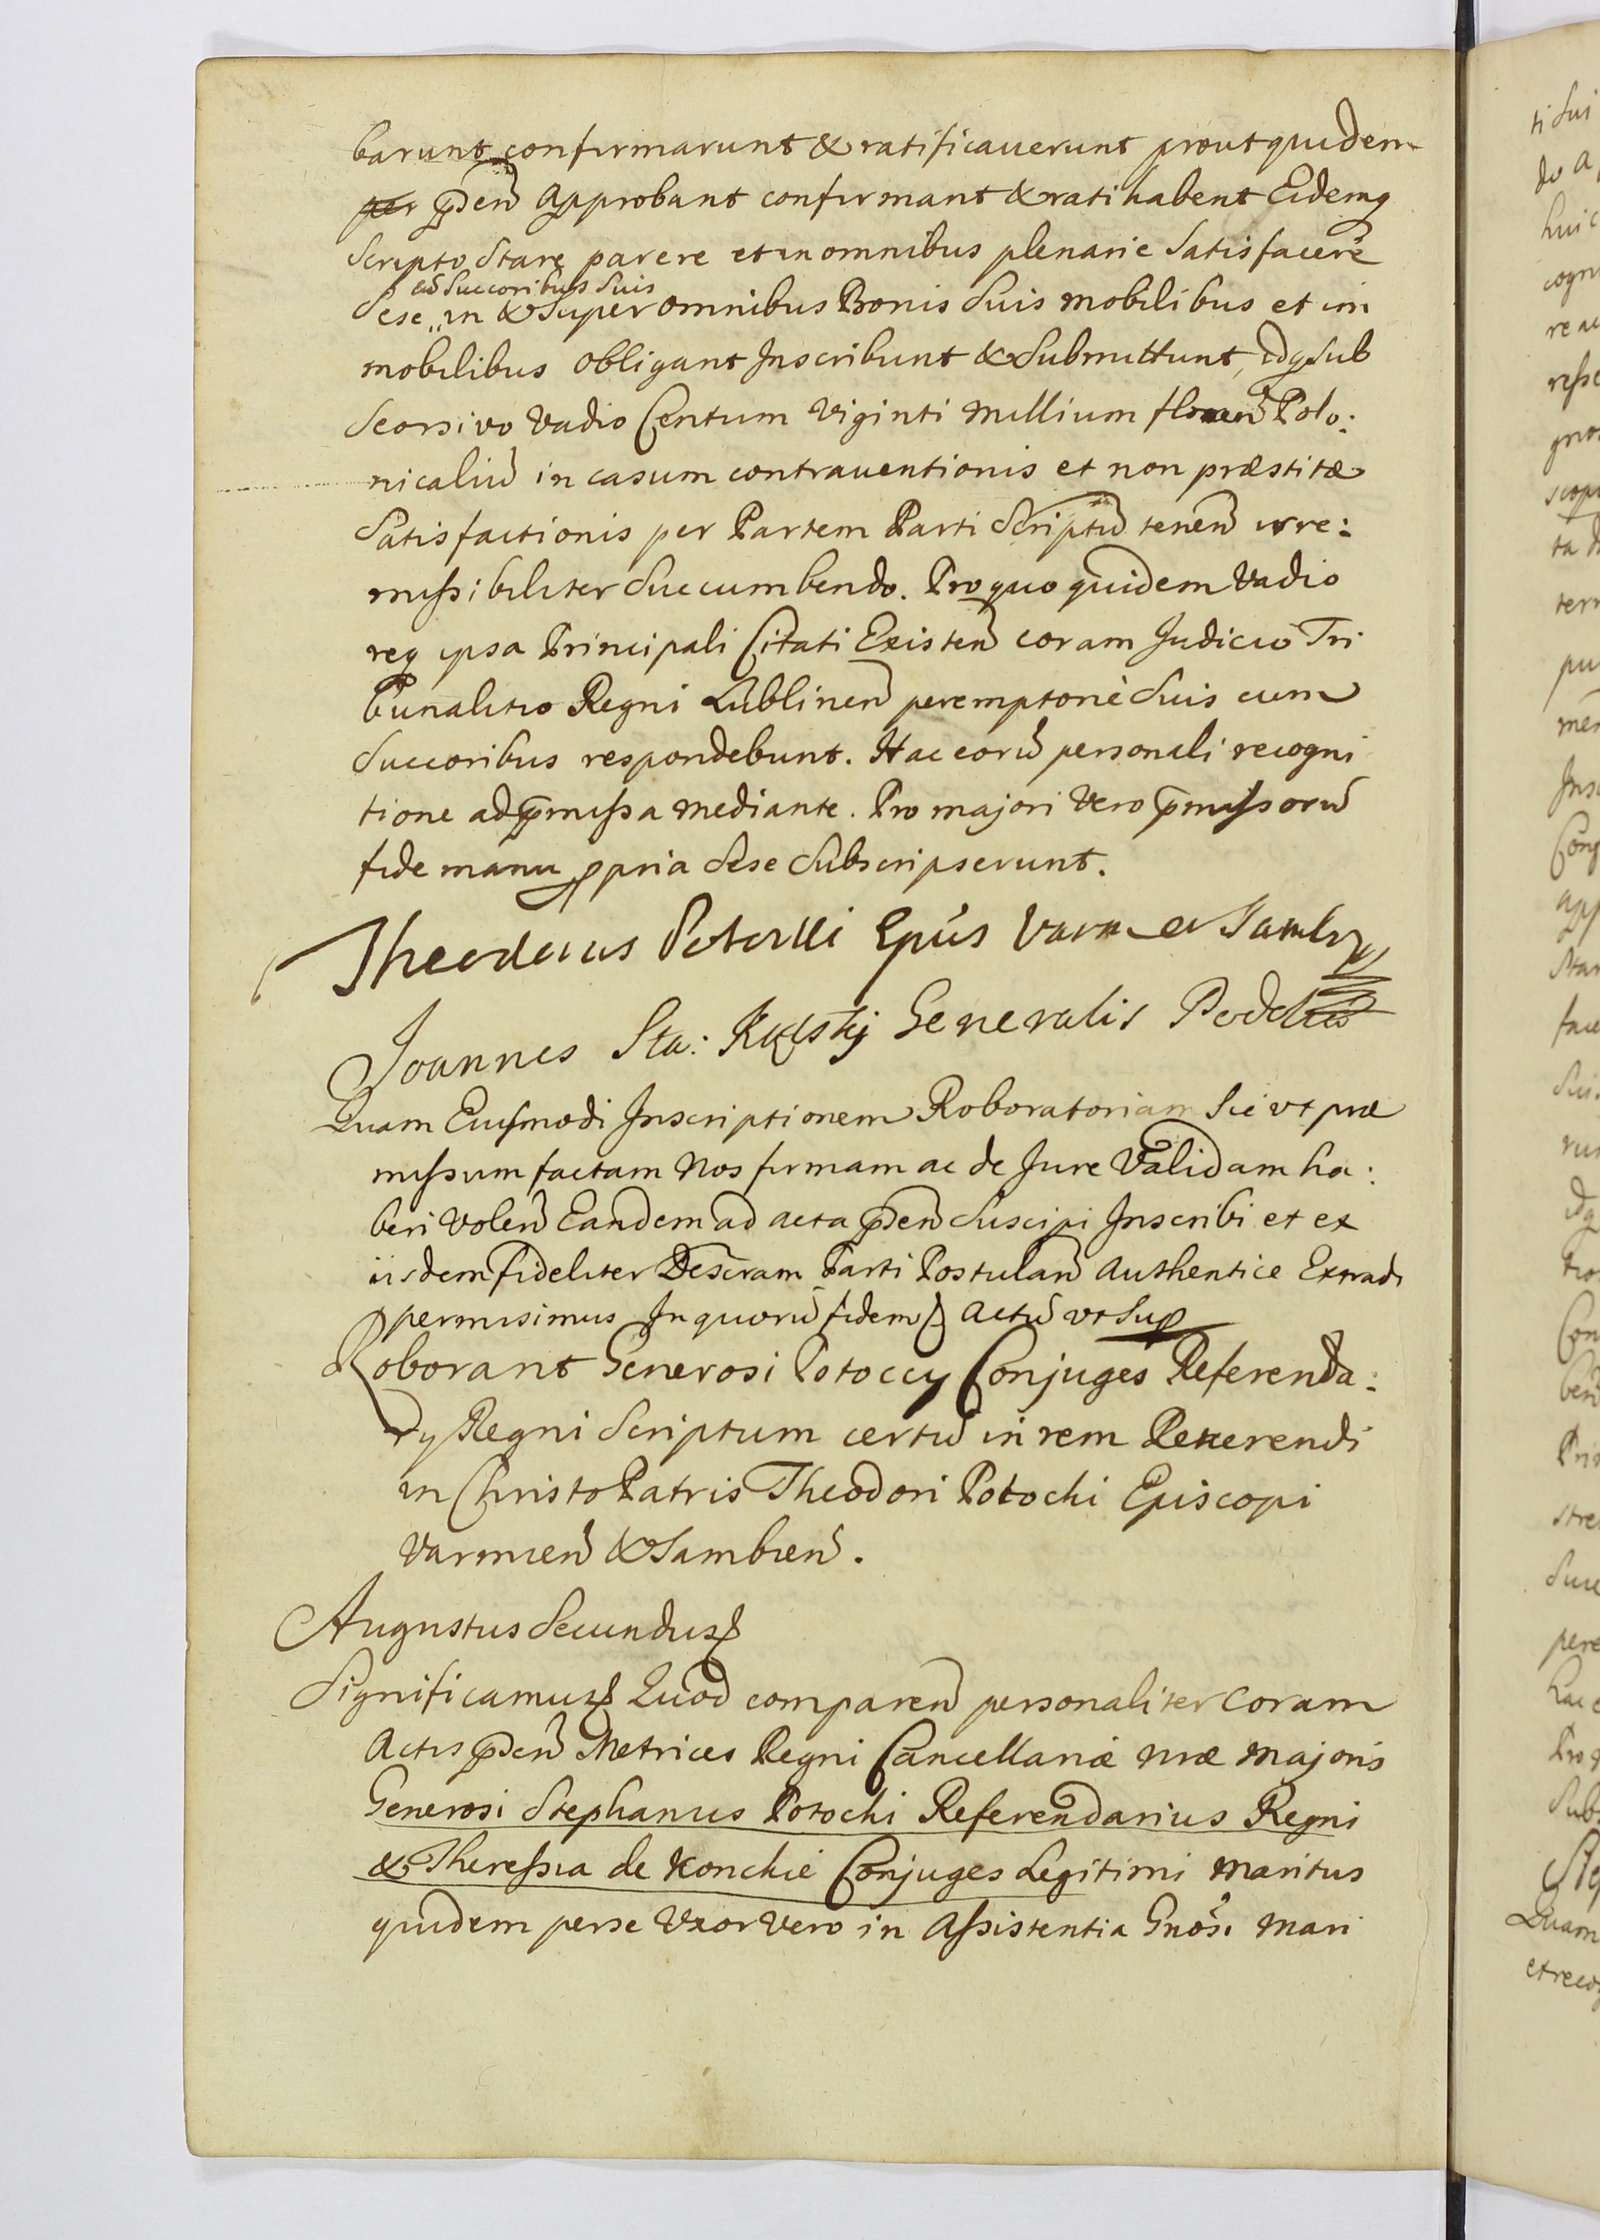 barunt confirmarunt & ratificaverunt prout quidem
per p̄den̄ Approbant confirmant & ratihabent Eidemq
Scripto Stare parere et in omnibus plenarie Satisfacere
cū Succoribus Suis
Sese „ in & Super omnibus Bonis Suis mobilibus et im
mobilibus obligant Inscribunt & Submittunt, idq Sub
Seorsivo Vadio Centum Viginti Millium floren̄ Polo:
nicaliū in casum contraventionis et non præstitæ
Satisfactionis per Partem Parti Scriptū tenen̄ irre:
missibiliter Succumbendo. Pro quo quidem Vadio
req ipsa Principali Citati Existen̄ coram Judicio Tri
bunalitio Regni Lublinen̄ peremptoriè Suis cum
Succoribus respondebunt. Hac eorū personali recogni
tione ad p̄missa mediante. Pro majori Vero p̄missorū
fide manu ppria Sese Subscripserunt.
Theodorus Potocki Epūs Varm et Samb
Joannes Sta: Kątski Generalis Podoliæ
Quam Eiusmodi Inscriptionem Roboratoriam Sic ut præ
missum factam Nos firmam ac de Jure Validam ha:
beri Volen̄ Eandem ad acta p̄den̄ Suscipi Inscribi et ex
iisdem fideliter Descram Parti Postulan̄ Authentice Extradi
permisimus In quorū fidem Actū ut Sup
Roborant Generosi Potoccy Conjuges Referenda:
ry Regni Scriptum certū in rem Reverendi
in Christo Patris Theodori Potocki Episcopi
Varmien̄ & Sambien̄.
Augustus Secundus
Significamus Quod comparen̄ personaliter coram
Actis p̄den̄ Metrices Regni Cancellariæ nræ majoris
Generosi Stephanus Potocki Referendarius Regni
& Theressia de Konckie Conjuges Legitimi Maritus
quidem per se Uxor Vero in Assistentia Gnosi Mari